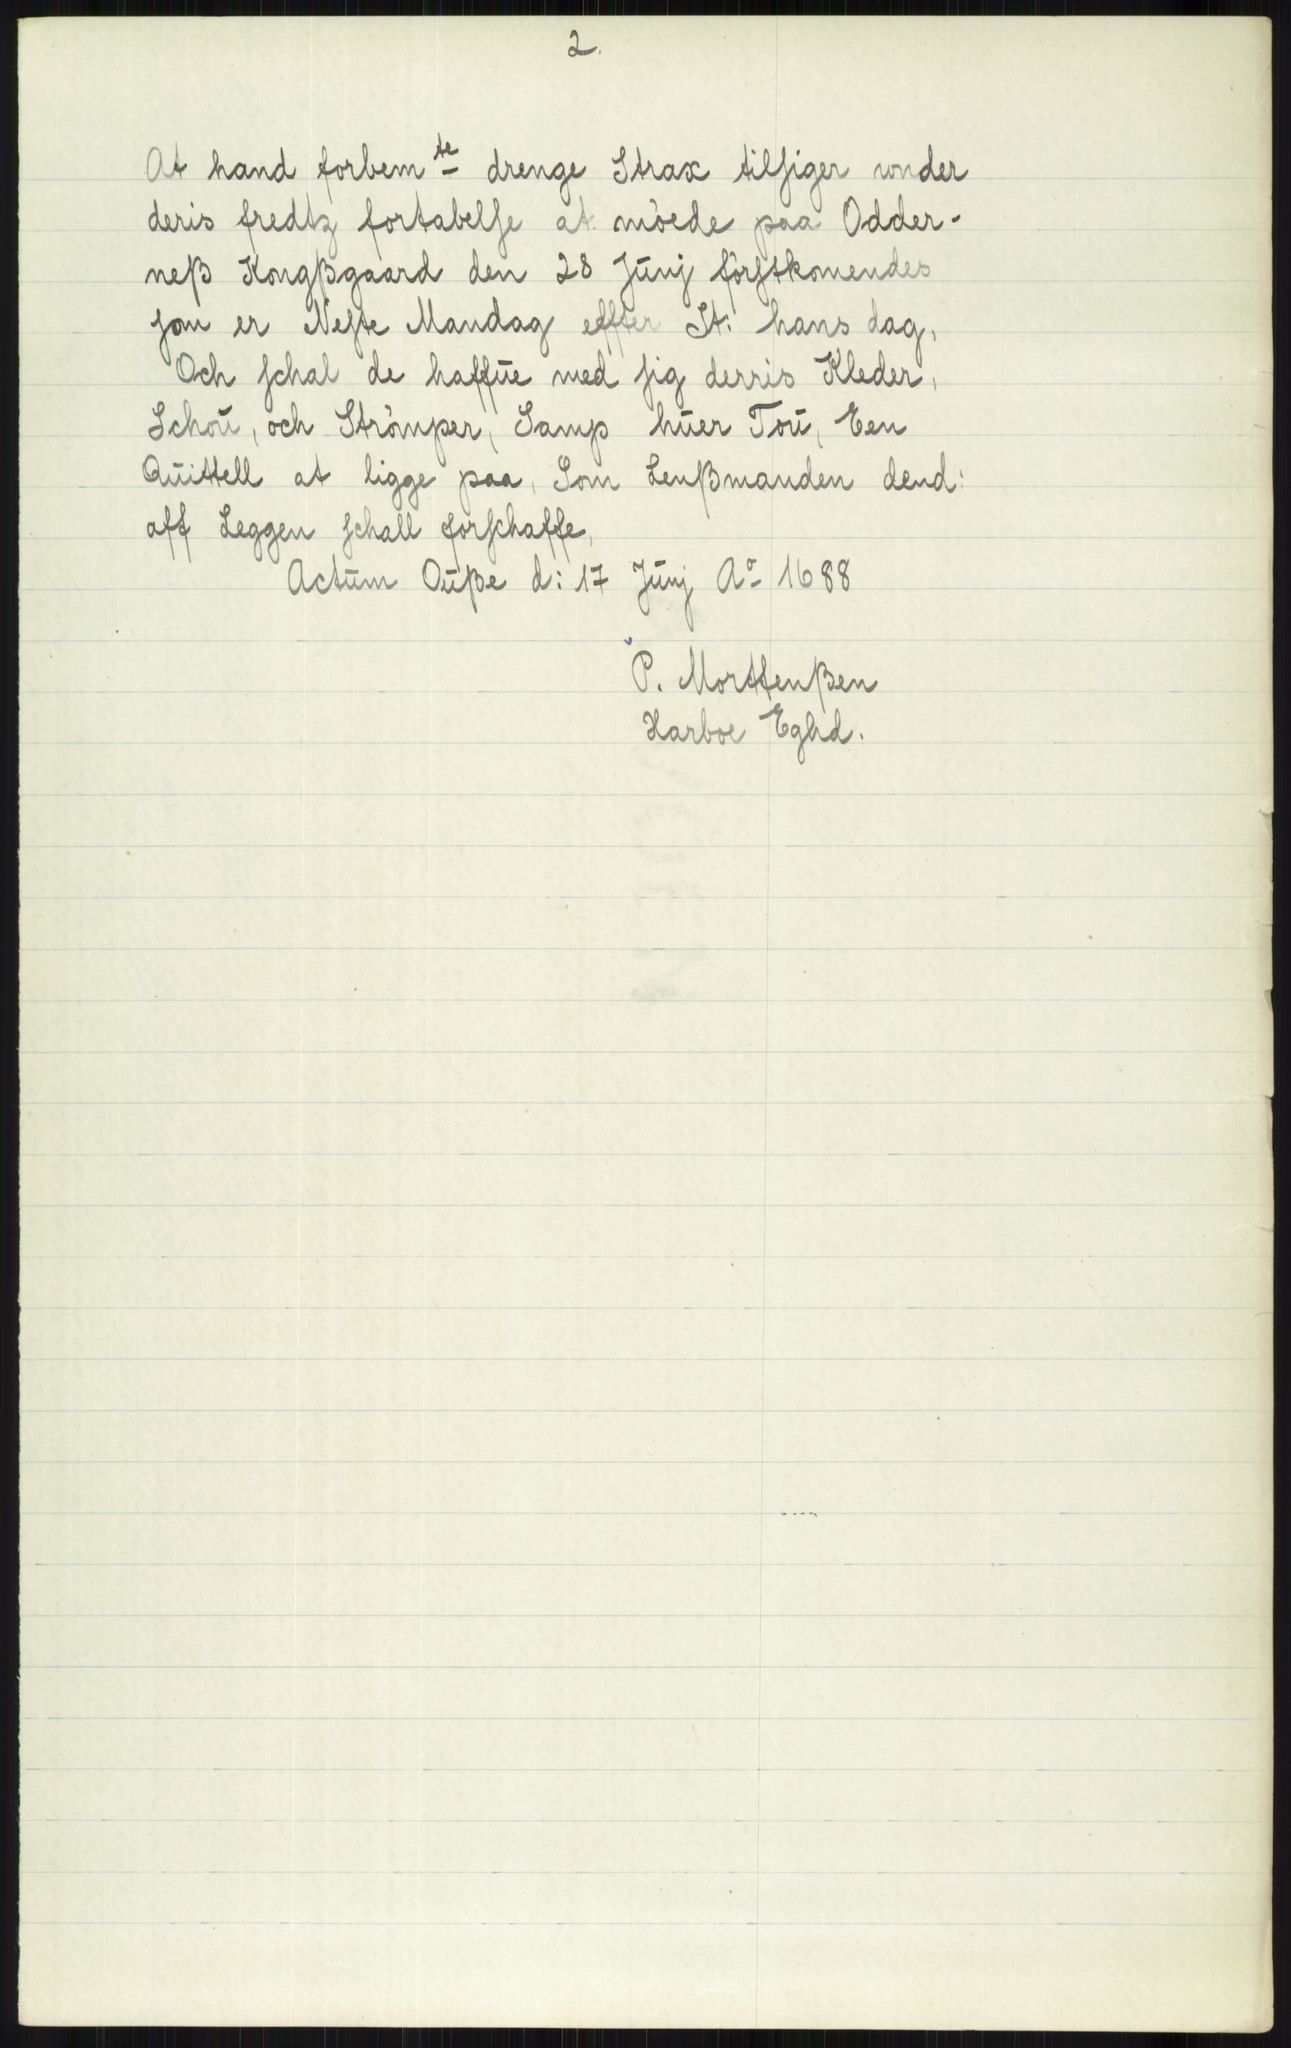 2.
At hand forbem te drenge Strax tilsiger under
deris fredtz fortabelse at möede paa Odder-
neß Kongßgaard den 28 Junj förstkomendes
som er Neste Mandag effter St: hans dag,
Och schal de haffue med sig derris Kleder,
Schou, och Strömper, Samp huer Tou, Een
Quittell at ligge paa, Som Lenßmanden dend:
aff Leggen schall forschaffe,
Actum Ouße d: 17 Junj Ao 1688
P. Morttenßen
Harboe Eghd.